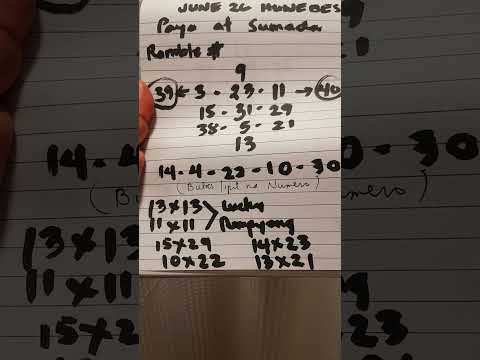 JUNE 26 HUWEBES
Payo at Sumada
Ramble #
9
39 ← 3 - 23 - 11 → 40
15 - 31 - 29
38 - 5 - 21
13
14 - 4 - 23 - 10 - 30
13 x 13
11 x 11
15 x 29 14 x 23
10 x 22 13 x 21